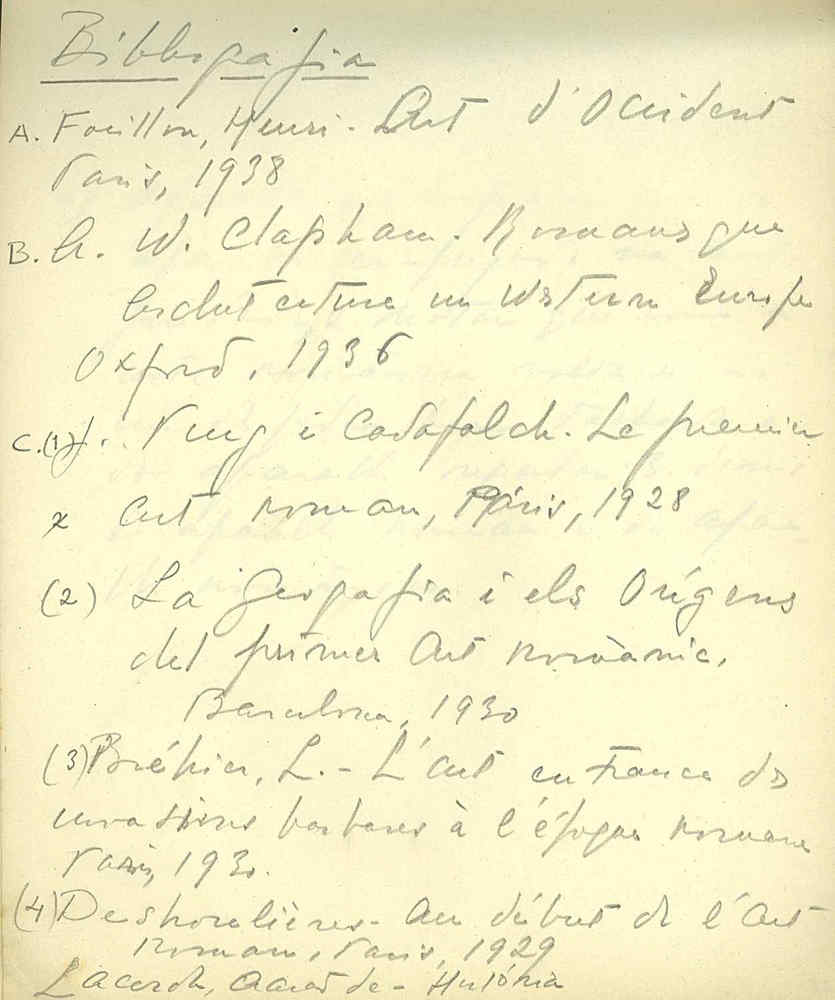 Bibliografia
A. Focillon, Henri - L'Art d'Occident
Paris, 1938
B. A. W. Clapham. Romanesque
Architecture in Western Europe
Oxford, 1936
C. (1) J. Puig i Cadafalch. Le premier
x art roman, Paris, 1928
(2) La Geografia i els Orígens
del primer Art romànic.
Barcelona, 1930
(3) Bréhier, L. - L'art en France des
invasions barbares à l'époque romane
Paris, 1930.
(4) Deshoulières - Au début de l'Art
Roman, Paris, 1929
Lacerda, Aarão de - História